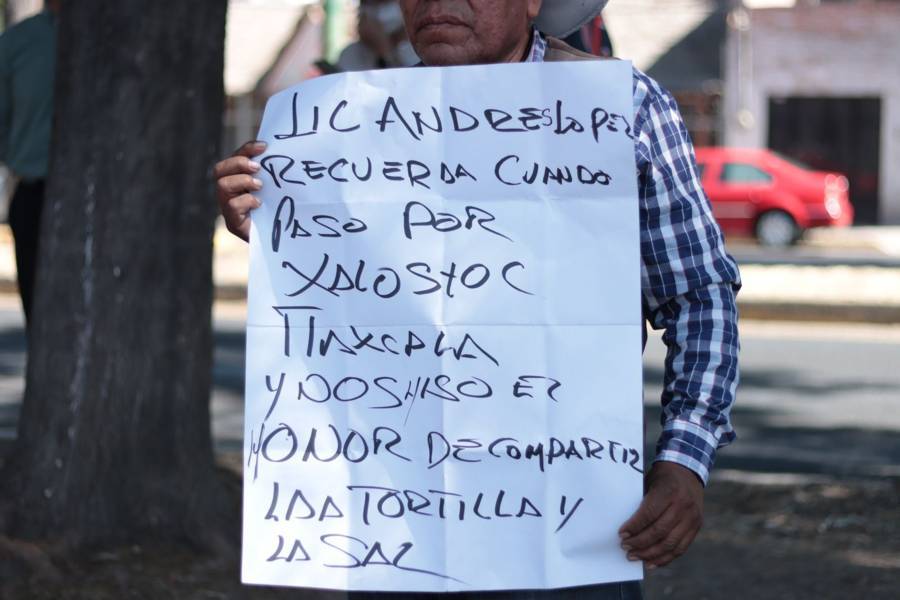 LIC ANDRES LOPEZ
RECUERDA CUANDO
PASO POR
XALOSTOC
TLAXCALA
Y NOS HISO EL
HONOR DE COMPARTIR
LAA TORTILLA Y
LA SAL